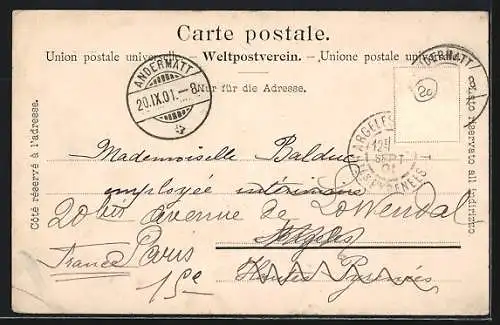 Carte postale.
Union postale universelle. – Weltpostverein. – Unione postale universale
Nur für die Adresse.
ANDERMATT
20.IX.01.–8
ANDERMATT
20
ARGELÈS
SEPT
01
PYRÉNÉES
Côté réservé à l'adresse.
Lato riservato all'indirizzo
Mademoiselle Balduc
employée intérimaire
20 bis avenue de Lowendal
Argelès
Paris
France
15e
Hautes Pyrénées